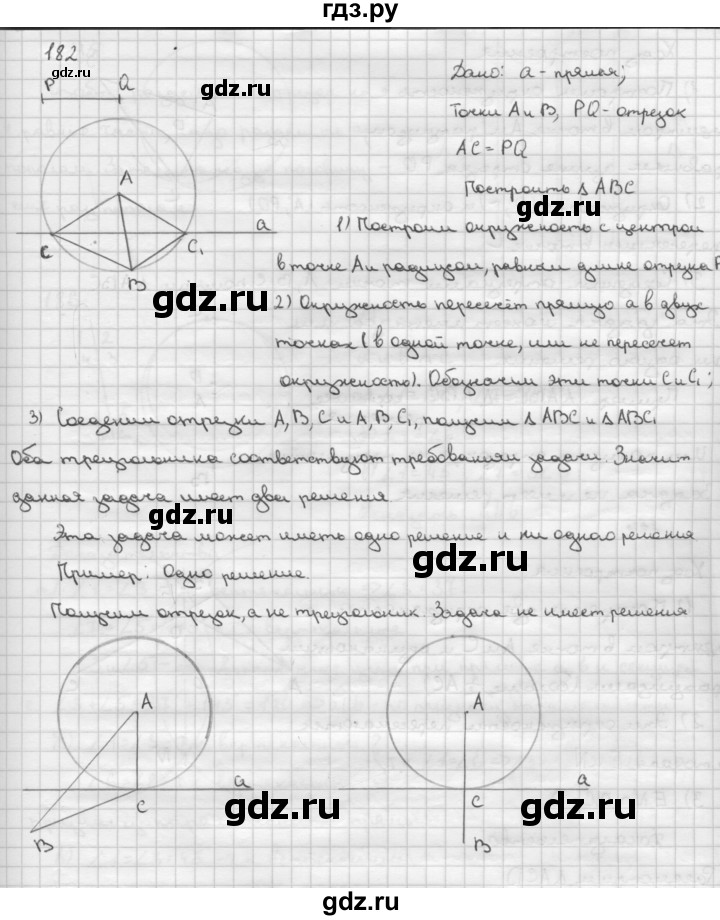 гдз.ру
182
gdz.ru
P Q
gdz.ru
Дано: a - прямая;
Точки A и B, PQ - отрезок
AC = PQ
Построить Δ ABC
gdz.ru
A
a
C
C₁
B
gdz.ru
1) Построим окружность с центром
в точке A и радиусом, равным длине отрезка P
2) Окружность пересечёт прямую a в двух
точках (в одной точке, или не пересечет
окружность). Обозначим эти точки C и C₁;
gdz.ru
3) Соединим отрезки A, B, C и A, B, C₁, получим Δ ABC и Δ ABC₁
Оба треугольника соответствуют требованиям задачи. Значит
данная задача имеет два решения
gdz.ru
Эта задача может иметь одно решение и ни одного решения
gdz.ru
Пример: Одно решение.
Получим отрезок, а не треугольник. Задача не имеет решения
A
a
C
B
gdz.ru
A
a
C
B
gdz.ru
gdz.ru